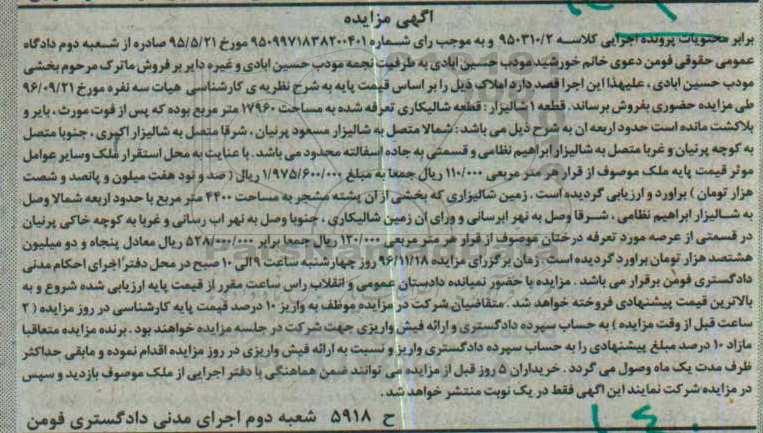 آگهی مزایده
برابر محتویات پرونده اجرایی کلاسه ۹۵۰۳۱۰/۲ و به موجب رای شماره ۹۵۰۹۹۷۱۸۳۸۲۰۰۴۰۱ مورخ ۹۵/۵/۲۱ صادره از شعبه دوم دادگاه
عمومی حقوقی فومن دعوی خانم خورشید مودب حسین آبادی به طرفیت نجمه مودب حسین آبادی و غیره دایر بر فروش ماترک مرحوم بخشی
مودب حسین ابادی ، علیهذا این اجرا قصد دارد املاک ذیل را بر اساس قیمت پایه به شرح نظریه ی کارشناسی هیات سه نفره مورخ ۹۶/۰۹/۲۱
طی مزایده حضوری بفروش برساند. قطعه ۱ شالیزار : قطعه شالیکاری تعرفه شده به مساحت ۱۷۹۶۰ متر مربع بوده که پس از فوت مورث ، بایر و
بلاکشت مانده است حدود اربعه ان به شرح ذیل می باشد : شمالا متصل به شالیزار مسعود پرنیان ، شرقا متصل به شالیزار اکبری ، جنوبا متصل
به کوچه پرنیان و غربا متصل به شالیزار ابراهیم نظامی و قسمتی به جاده اسفالته محدود می باشد . با عنایت به محل استقرار ملک وسایر عوامل
موثر قیمت پایه ملک موصوف از قرار هر متر مربعی ۱۱۰/۰۰۰ ریال جمعا به مبلغ ۱/۹۷۵/۶۰۰/۰۰۰ ریال ( صد و نود هفت میلون و پانصد و شصت
هزار تومان ) براورد و ارزیابی گردیده است . زمین شالیزاری که بخشی از ان پشته مشجر به مساحت ۴۴۰۰ متر مربع با حدود اربعه شمالا وصل
به شالیزار ابراهیم نظامی ، شرقا وصل به نهر ابرسانی و ورای ان زمین شالیکاری ، جنوبا وصل به نهر اب رسانی و غربا به کوچه خاکی پرنیان
در قسمتی از عرصه مورد تعرفه درختان موصوف از قرار هر متر مربعی ۱۲۰/۰۰۰ ریال جمعا برابر ۵۲۸/۰۰۰/۰۰۰ ریال معادل پنجاه و دو میلیون
هشتصد هزار تومان براورد گردیده است . زمان برگزرای مزایده ۹۶/۱۱/۱۸ روز چهارشنبه ساعت ۹ الی ۱۰ صبح در محل دفتر اجرای احکام مدنی
دادگستری فومن برقرار می باشد . مزایده با حضور نمیانده دادستان عمومی و انقلاب راس ساعت مقرر از قیمت پایه ارزیابی شده شروع و به
بالاترین قیمت پیشنهادی فروخته خواهد شد . متقاضیان شرکت در مزایده موظف به واریز ۱۰ درصد قیمت پایه کارشناسی در روز مزایده ( ۲
ساعت قبل از وقت مزایده ) به حساب سپرده دادگستری و ارائه فیش واریزی جهت شرکت در جلسه مزایده خواهند بود . برنده مزایده متعاقبا
مازاد ۱۰ درصد مبلغ پیشنهادی را به حساب سپرده دادگستری واریز و نسبت به ارائه فیش واریزی در روز مزایده اقدام نموده و مابقی حداکثر
ظرف مدت یک ماه وصول می گردد . خریداران ۵ روز قبل از مزایده می توانند ضمن هماهنگی با دفتر اجرایی از ملک موصوف بازدید و سپس
در مزایده شرکت نمایند این اگهی فقط در یک نوبت منتشر خواهد شد .
ح ۵۹۱۸ شعبه دوم اجرای مدنی دادگستری فومن